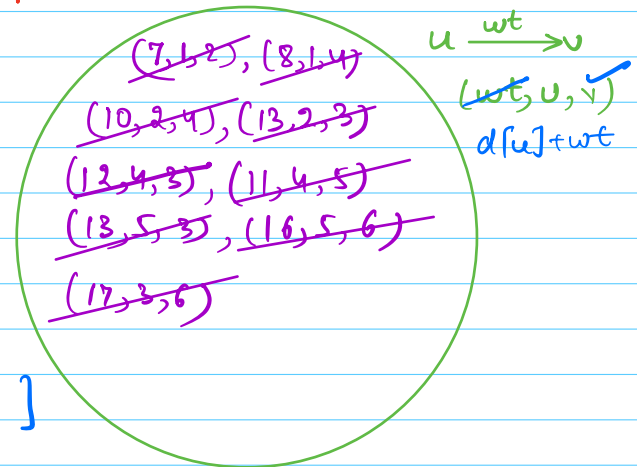 (7,1,2), (8,1,4)
(10,2,4), (13,2,3)
(12,4,3), (11,4,5)
(13,5,3), (16,5,6)
(17,3,6)
]
u wt → v
(wt, u, v) ✓
d[u]+wt